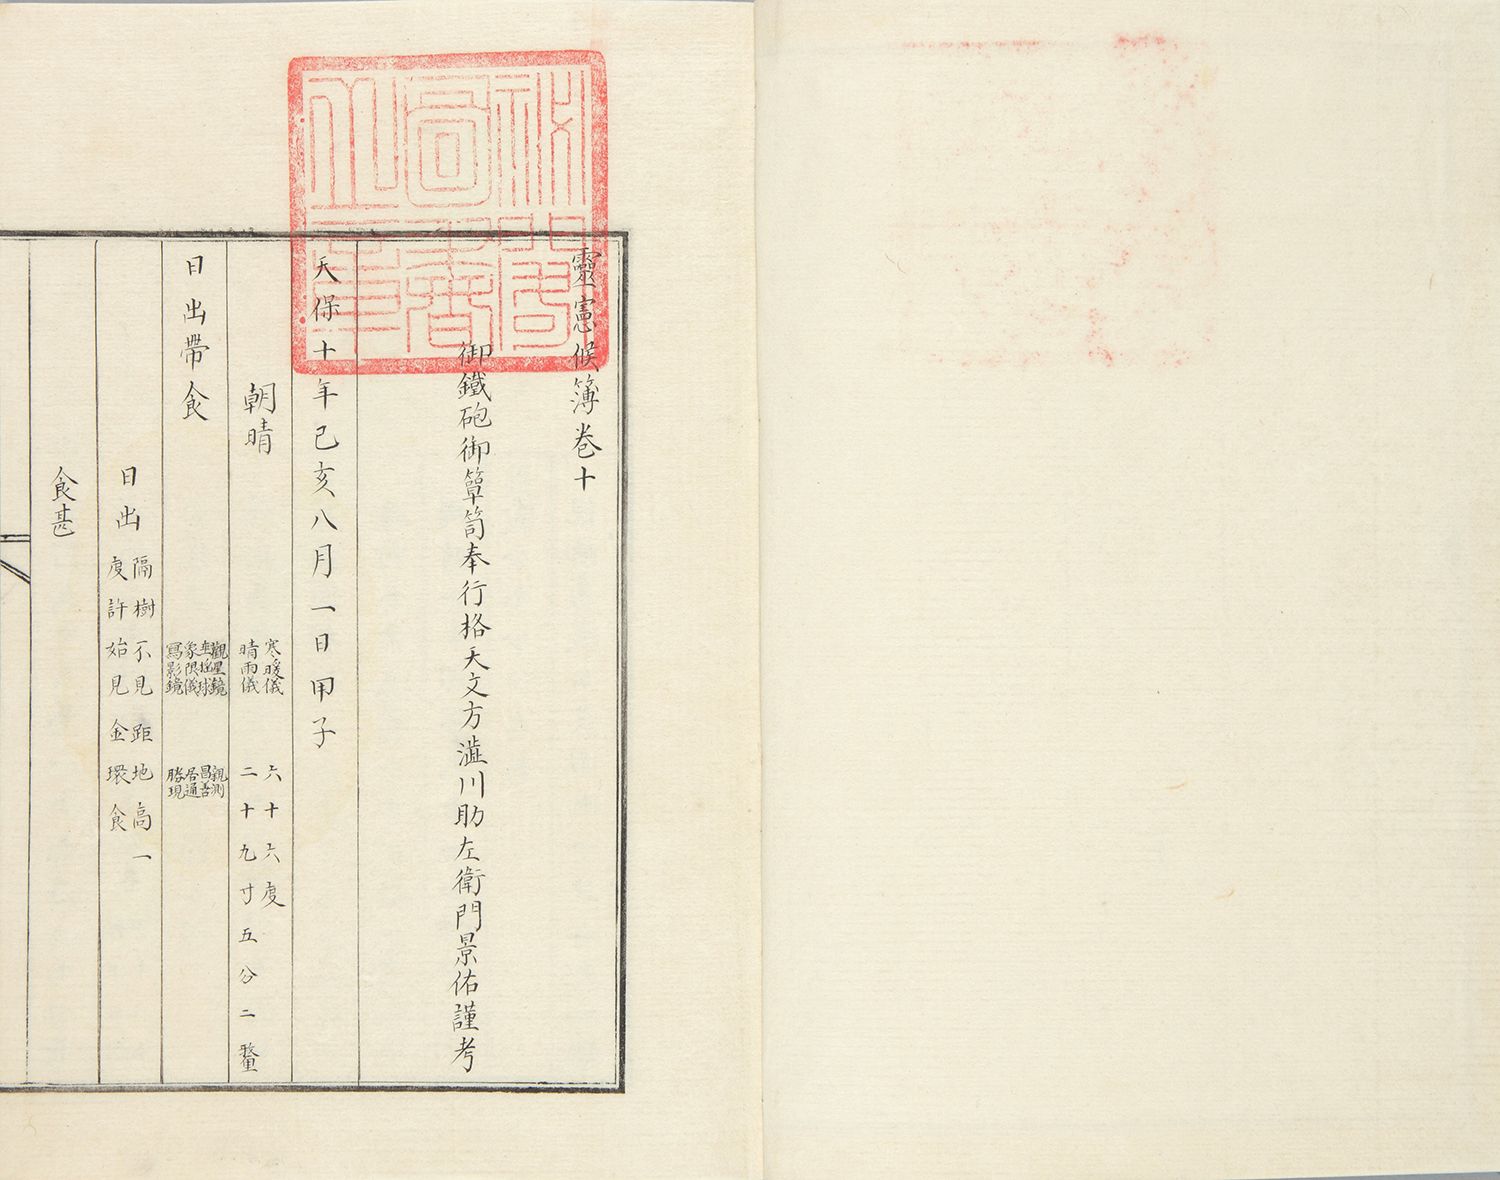 靈憲候簿卷十
御鐵砲御簞笥奉行格天文方澁川助左衛門景佑謹考
天保十年己亥八月一日甲子
朝晴
寒暖儀 六十六度
晴雨儀 二十九寸五分二釐
日出帶食
觀星鏡 親測
垂揺球 昌善
象限儀 居通
寫影鏡 勝現
日出
隔樹不見距地高一
度許始見金環食
食甚